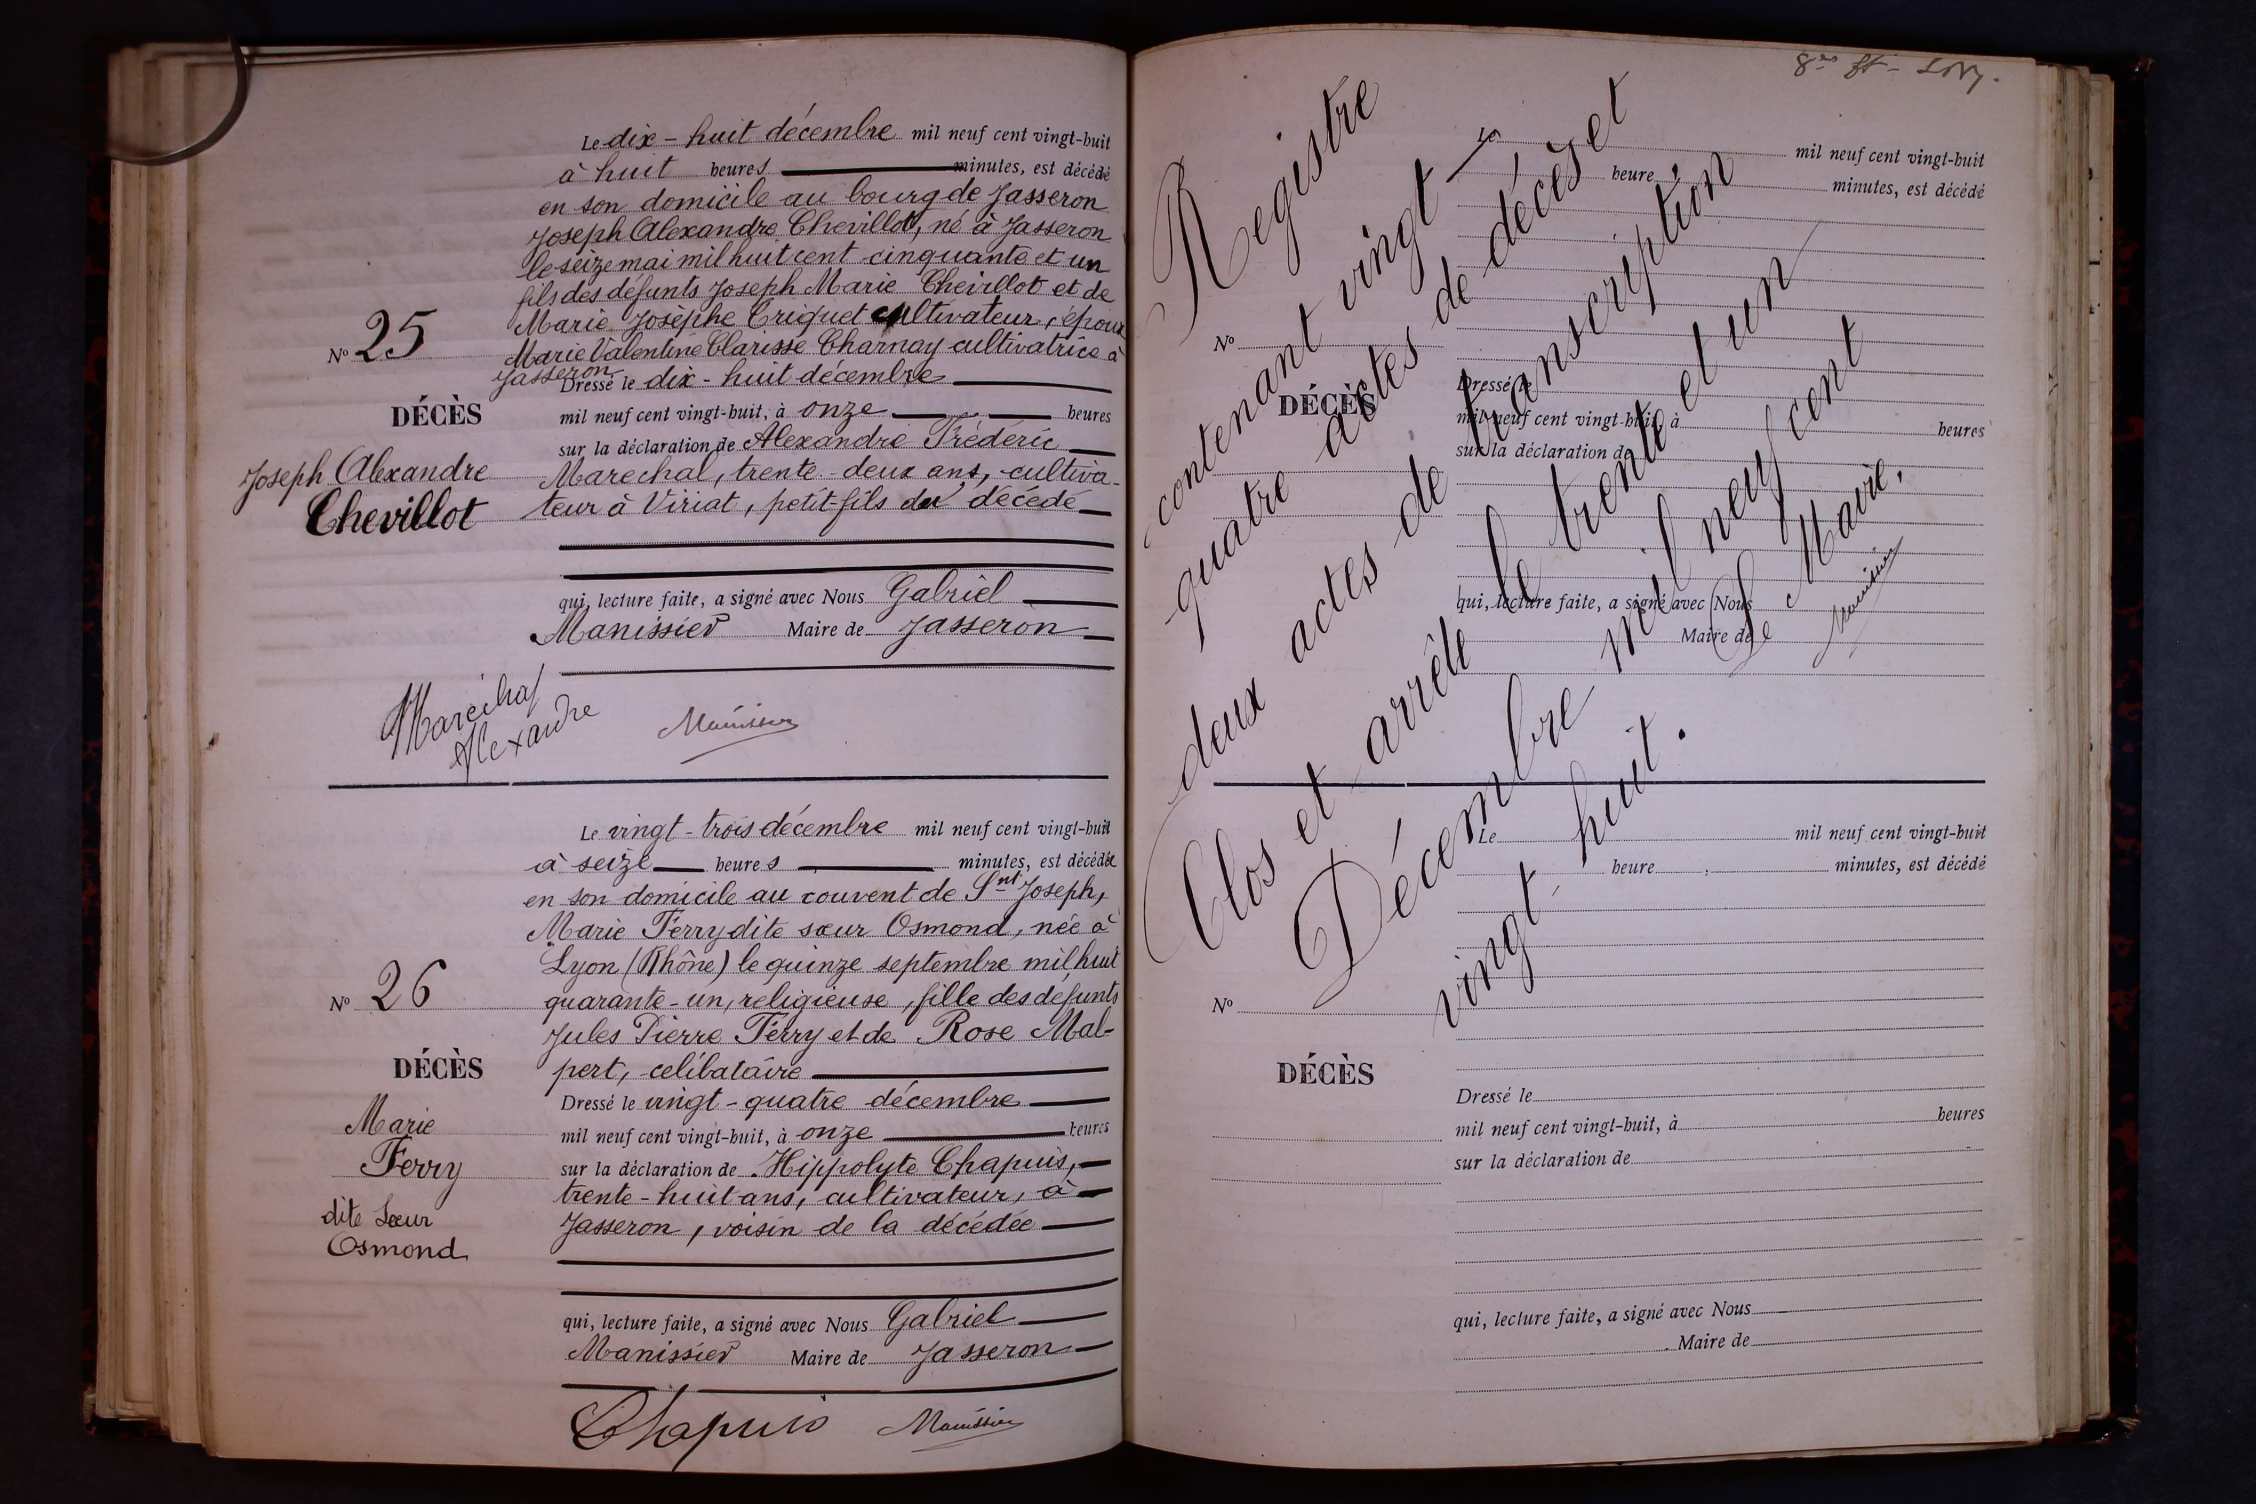 Le dix-huit décembre mil neuf cent vingt-huit
à huit heures minutes, est décédé
en son domicile au bourg de Jasseron
Joseph Alexandre Chevillot, né à Jasseron
le seize mai mil huit cent cinquante et un
fils des défunts Joseph Marie Chevillot et de
Marie Josèphe Criquet cultivateur, époux
Marie Valentine Clarisse Charnay cultivatrice à
Jasseron
N° 25
DÉCÈS
Joseph Alexandre
Chevillot
Dressé le dix-huit décembre
mil neuf cent vingt-huit, à onze heures
sur la déclaration de Alexandre Fréderic
Marechal, trente-deux ans, cultiva-
teur à Viriat, petit-fils du décédé
qui, lecture faite, a signé avec Nous Gabriel
Manissier Maire de Jasseron
Maréchal
Alexandre
Manissier
Le vingt-trois décembre mil neuf cent vingt-huit
à seize heures minutes, est décédée
en son domicile au couvent de Snt Joseph,
Marie Ferry dite sœur Osmond, née à
Lyon (Rhône) le quinze septembre mil huit
quarante-un, religieuse, fille des défunts
Jules Pierre Ferry et de Rose Mal-
pert, célibataire
N° 26
DÉCÈS
Marie
Ferry
dite Sœur
Osmond
Dressé le vingt-quatre décembre
mil neuf cent vingt-huit, à onze heures
sur la déclaration de Hippolyte Chapuis,
trente-huit ans, cultivateur, à
Jasseron, voisin de la décédée
qui, lecture faite, a signé avec Nous Gabriel
Manissier Maire de Jasseron
Chapuis
Manissier
Registre
contenant vingt-
quatre actes de décès et
deux actes de transcription
Clos et arrêté le trente et un
Décembre mil neuf cent
vingt-huit.
Le Maire,
Manissier
Le mil neuf cent vingt-huit
heure minutes, est décédé
N°
DÉCÈS
Dressé le
mil neuf cent vingt-huit, à heures
sur la déclaration de
qui, lecture faite, a signé avec Nous
Maire de
Le mil neuf cent vingt-huit
heure minutes, est décédé
N°
DÉCÈS
Dressé le
mil neuf cent vingt-huit, à heures
sur la déclaration de
qui, lecture faite, a signé avec Nous
Maire de